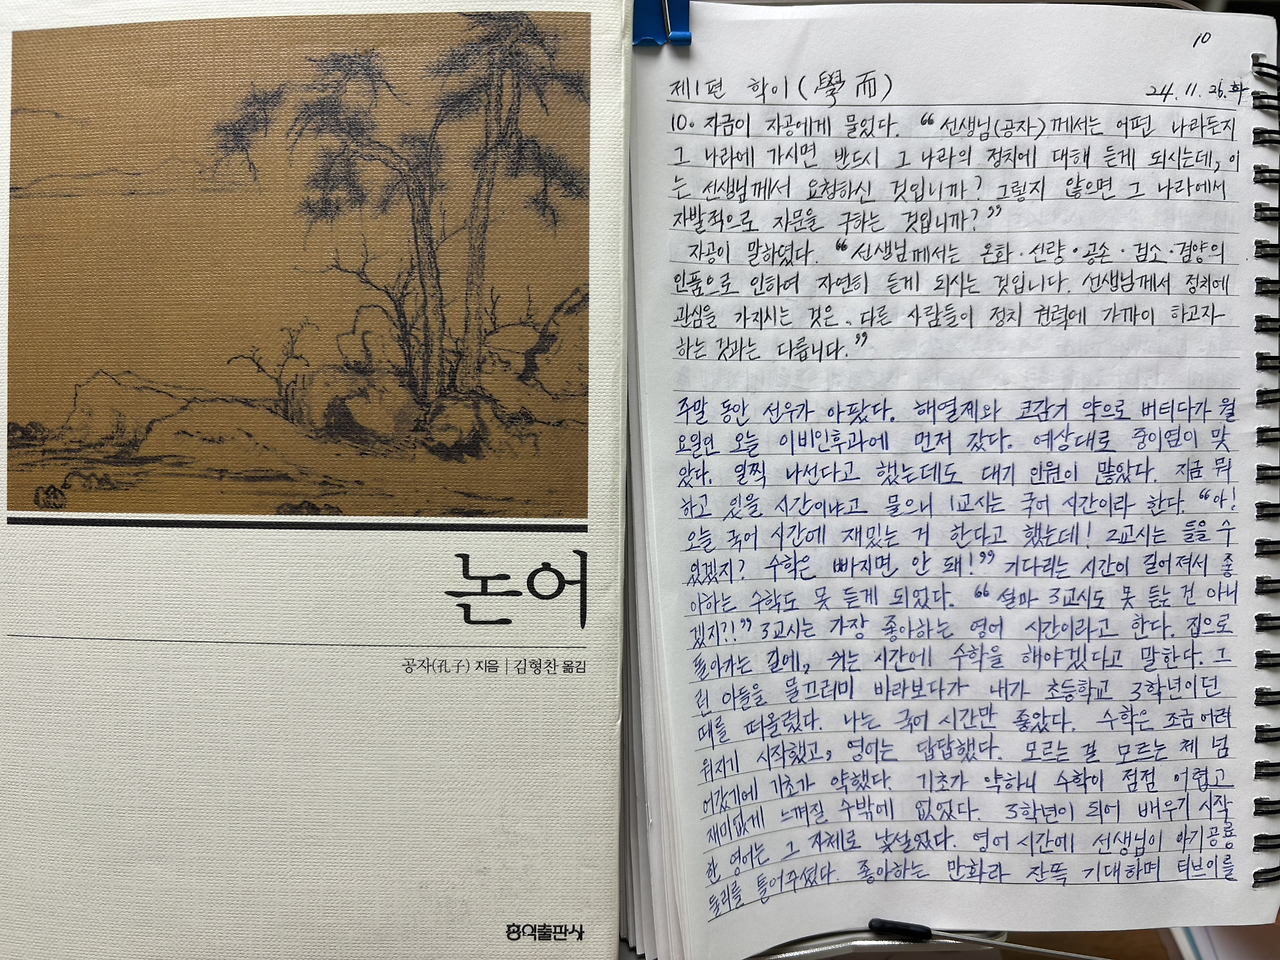 논어
공자(孔子) 지음 | 김형찬 옮김
홍익출판사
10
제1편 학이(學而)
24.11.26.화
10. 자금이 자공에게 물었다. "선생님(공자)께서는 어떤 나라든지
그 나라에 가시면 반드시 그 나라의 정치에 대해 듣게 되시는데, 이
는 선생님께서 요청하신 것입니까? 그렇지 않으면 그 나라에서
자발적으로 자문을 구하는 것입니까?"
자공이 말하였다. "선생님께서는 온화·선량·공손·검소·겸양의
인품으로 인하여 자연히 듣게 되시는 것입니다. 선생님께서 정치에
관심을 가지시는 것은, 다른 사람들이 정치 권력에 가까이 하고자
하는 것과는 다릅니다."
주말 동안 선우가 아팠다. 해열제와 코감기 약으로 버티다가 월
요일인 오늘 이비인후과에 먼저 갔다. 예상대로 중이염이 맞
았다. 일찍 나선다고 했는데도 대기 인원이 많았다. 지금 뭐
하고 있을 시간이냐고 물으니 1교시는 국어 시간이라 한다. "아!
오늘 국어 시간에 재밌는 거 한다고 했는데! 2교시는 들을 수
있겠지? 수학은 빠지면 안 돼!" 기다리는 시간이 길어져서 좋
아하는 수학도 못 듣게 되었다. "설마 3교시도 못 듣는 건 아니
겠지?!" 3교시는 가장 좋아하는 영어 시간이라고 한다. 집으로
돌아가는 길에, 쉬는 시간에 수학을 해야겠다고 말한다. 그
런 아들을 물끄러미 바라보다가 내가 초등학교 3학년이던
때를 떠올렸다. 나는 국어 시간만 좋았다. 수학은 조금 어려
워지기 시작했고, 영어는 답답했다. 모르는 걸 모르는 체 넘
어갔기에 기초가 약했다. 기초가 약하니 수학이 점점 어렵고
재미없게 느껴질 수밖에 없었다. 3학년이 되어 배우기 시작
한 영어는 그 자체로 낯설었다. 영어 시간에 선생님이 아기공룡
둘리를 틀어주셨다. 좋아하는 만화라 잔뜩 기대하며 티브이를